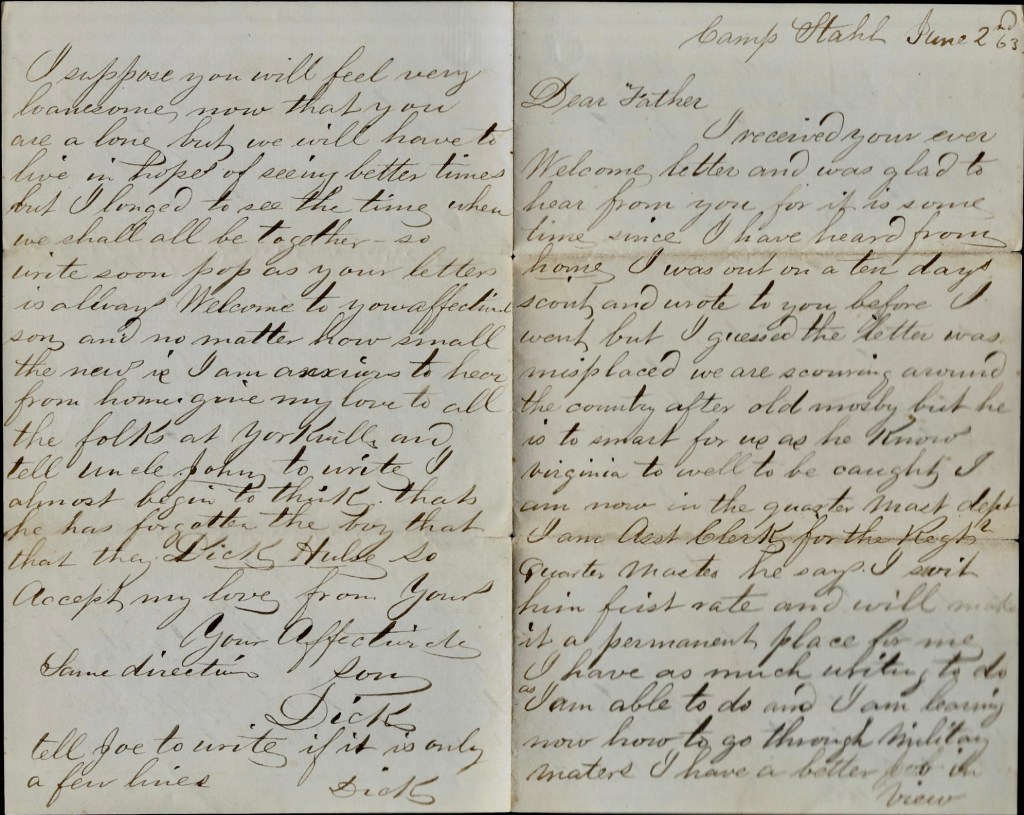 Camp Stahl June 2nd 63
Dear Father
I received your ever
Welcome letter and was glad to
hear from you for it is some
time since I have heard from
home I was out on a ten days
scout and wrote to you before I
went but I guessed the letter was
misplaced we are scouring around
the country after old mosby but he
is to smart for us as he Know
virginia to well to be caught I
am now in the quarter mast dept
I am Asst Clerk for the Regt
Quarter Master he says I suit
him first rate and will make
it a permanent place for me
I have as much writing to do
as I am able to do and I am learing
now how to go through Military
maters I have a better job in
view
I suppose you will feel very
loanesome now that you
are a lone but we will have to
live in hopes of seeing better times
but I longed to see the time when
we shall all be together - so
write soon pop as your letters
is allways Welcome to your affectinel
son and no matter how small
the news is I am anxious to hear
from home give my love to all
the folks at Yorkville and
tell uncle John to write I
almost begin to think that
he has forgotten the boy that
that they Dick Hulse so
Accept my love from Your
Your Affectinate
Same direction son
Dick
tell Joe to write if it is only
a few lines Dick